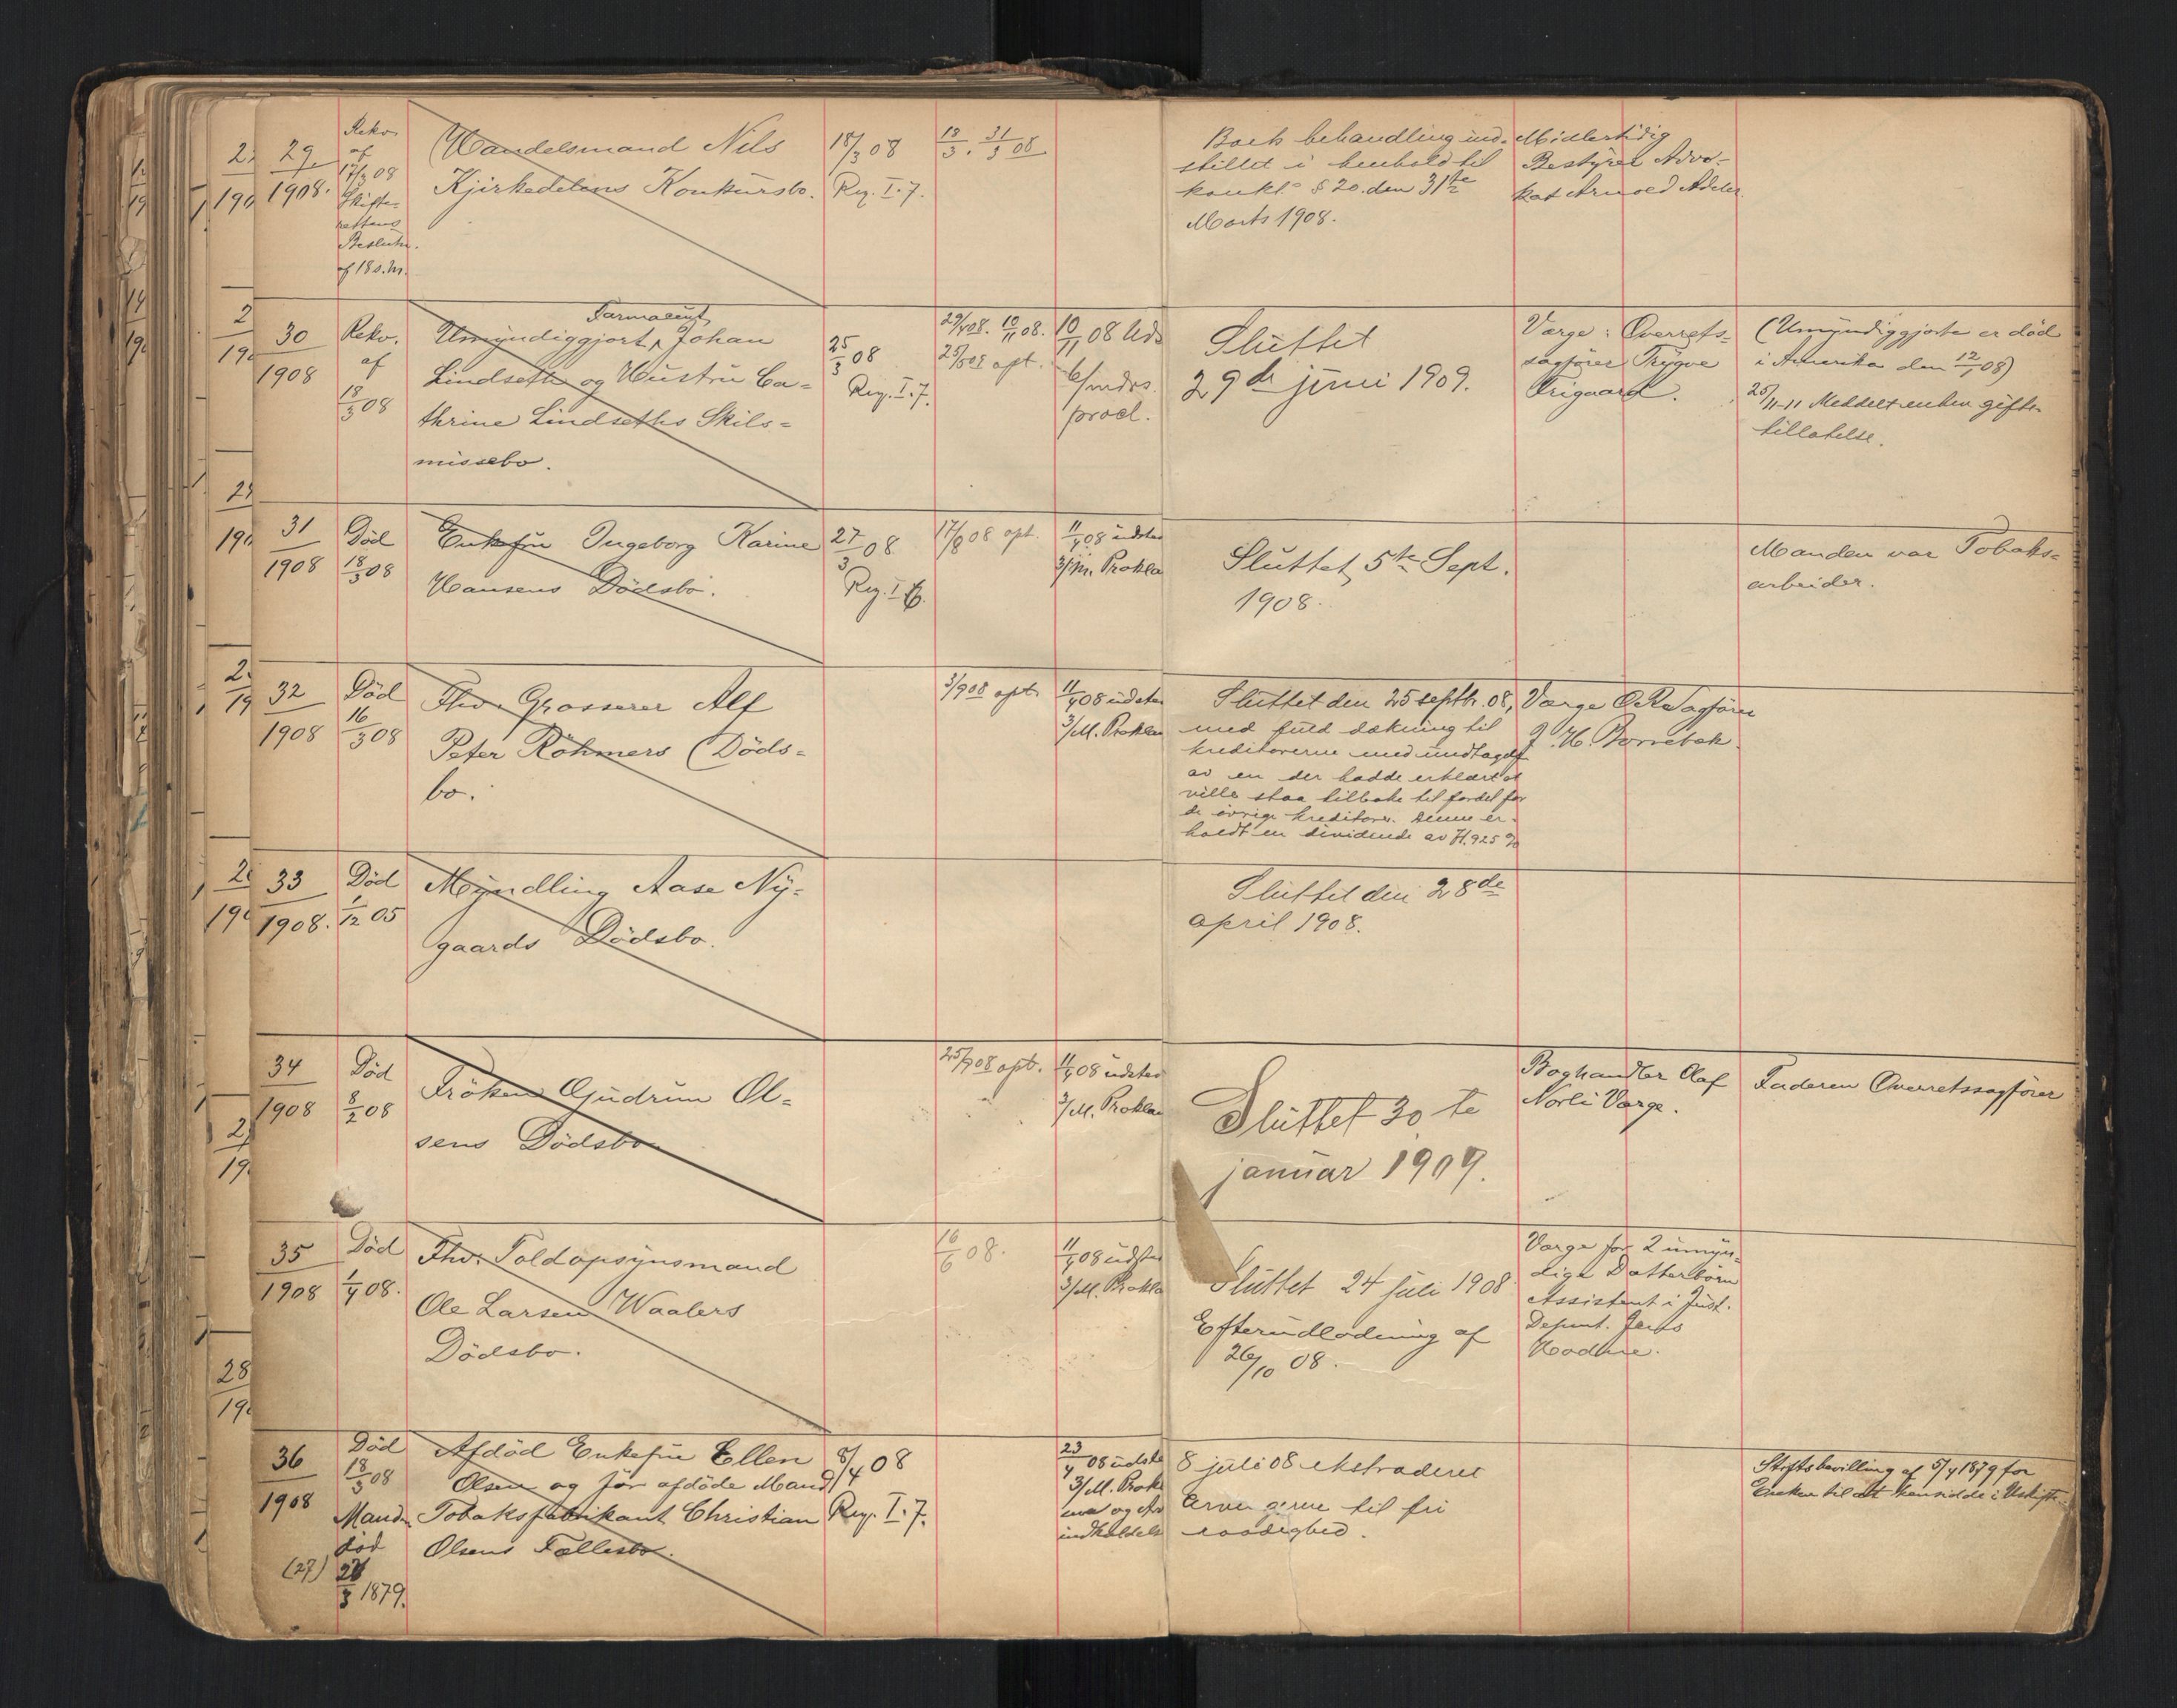 29
1908.
Rekv.
af
17/3 08
Skifte-
rettens
Beslutn.
af 18 s.m.
Handelsmand Nils
Kjirkedelens Konkursbo.
18/3 08
Reg. I. 7.
18/3. 31/3 08
Boets behandling ind-
stillet i henhold til
konkl. § 20. den 31te
Marts 1908.
Midlertidig
Bestyrer Advo-
kat Arnold Adeler
30
1908
Rekv.
af
18/3 08
Farmaceut
Umyndiggjort Johan
Lindseth og Hustru Ca-
thrine Lindseths Skils-
missebo.
25/3 08
Reg. I. 7.
29/4 08. 10/11 08.
25/5 08 opt.
10/11 08 Uds
6/mdrs.
procl.
Sluttet
29de juni 1909.
Værge: Overrets-
sagfører Trygve
Frigaard.
(Umyndiggjorte er död
i Amerika den 12/1 08)
25/11-11 Meddelt enken gifte-
tillatelse.
31
1908
Död
18/3 08
Enkefru Ingeborg Karine
Hansens Dödsbo.
27/3 08
Reg. I 6.
17/8 08 opt.
11/4 08 udsted
3/M. Prokla
Sluttet 5te Sept.
1908.
Manden var Tobaks-
arbeider.
32
1908
Död
16/3 08
Fhv. Grosserer Alf
Peter Röhmers (Döds-
bo.
3/9 08 opt.
11/4 08 udsted
3/M. Proklam
Sluttet den 25 septbr. 08,
med fuld dækning til
kreditorerne med undtagelse
av en der hadde erklært at
ville staa tilbake til fordel for
de øvrige kreditorer. Denne er-
holdt en dividende av 71.925 %
Værge O.R.Sagfører
J. H. Borrebæk.
33
1908.
Död
1/12 05
Myndling Aase Ny-
gaards Dödsbo.
Sluttet den 28de
april 1908.
34
1908
Död
8/2 08
Fröken Gudrun Ol-
sens Dödsbo
25/9 08 opt.
11/4 08 udsted
3/M. Proklam
Sluttet 30te
januar 1909.
Boghandler Olaf
Norli Værge.
Faderen Overretssagförer
35
1908
Död
1/4 08.
Fhv. Toldopsynsmand
Ole Larsen Waalers
Dödsbo.
16/6 08.
11/4 08 udsted
3/M. Prokla
Sluttet 24 juli 1908
Efterudlodning af
26/10 08.
Værge for 2 umyn-
dige Datterbörn
Assistent i Just.
Depmt. Jens
36
1908
(27)
Död
18/3 08
Manden
död
28/3 1879.
Afdöd Enkefru Ellen
Olsen og før afdöde Mand
Tobaksfabrikant Christian
Olsens Fællesbo.
8/4 08
Reg. I. 7.
23/4 08 udste
3/M. Prok
ma og Ar
indkaldels
8 juli 08 ekstraderet
arvingerne til fri
raadighed.
Skiftebevilling af 5/4 1879 for
Enken til at hensidde i Uskifte.